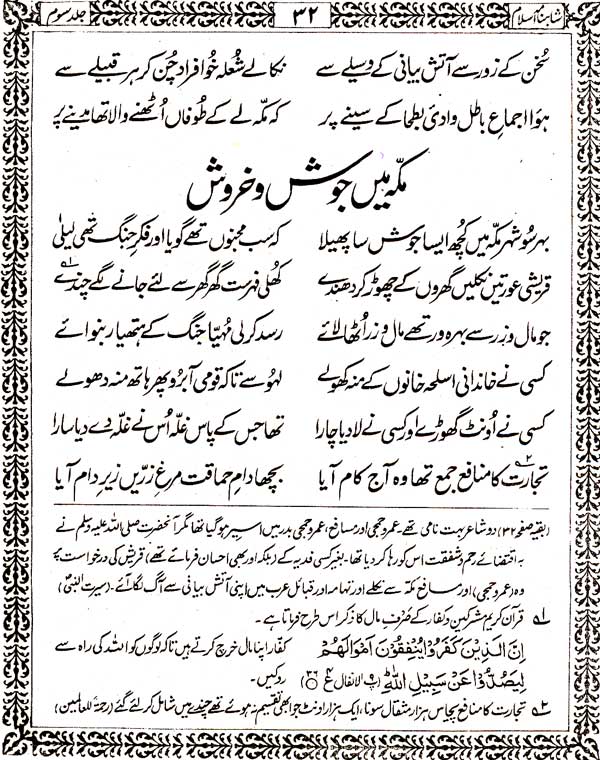 شاہنامۂ اسلام ۳۲ جلد سوم
سُخن کے زور سے آتش بیانی کے وسیلے سے نکالے شُعلہ خُو افراد چُن کر ہر قبیلے سے
ہوا اجماعِ باطل وادیٔ بطحا کے سینے پر کہ مکّہ لے کے طُوفاں اُٹھنے والا تھا مدینے پر
مکّہ میں جوش و خروش
بہر سُو شہر مکّہ میں کچھ ایسا جوش سا پھیلا کہ سب مجنوں تھے گویا اور فکرِ جنگ تھی لیلٰی
قریشی عورتیں نکلیں گھروں کے چھوڑ کر دھندے کھُلی فہرست گھر گھر سے لئے جانے لگے چندے ۱
جو مال و زر سے بہرہ ور تھے مال و زر اُٹھا لائے رسد کر لی مُہیّا جنگ کے ہتھیار بنوائے
کسی نے خاندانی اسلحہ خانوں کے منہ کھولے لہُو سے تاکہ قومی آبرو پھر ہاتھ منہ دھولے
کسی نے اُونٹ گھوڑے اور کسی نے لا دیا چارا تھا جس کے پاس غلّہ اُس نے غلّہ دے دیا سارا
تجارت ۲ کا منافع جمع تھا وہ آج کام آیا بچھا دامِ حماقت مرغِ زرّیں زیرِ دام آیا
(بقیہ صفحہ ۳۲) دو شاعر بہت نامی تھے۔ عمرو جمحی اور مسافع، عمرو جمحی بدر میں اسیر ہو گیا تھا مگر آنحضرت صلی اللہ علیہ وسلم نے
بہ اقتضائے رحم و شفقت اس کو رہا کر دیا تھا۔ بغیر کسی فدیہ کے (بلکہ اور بھی احسان فرمائے تھے) قریش کی درخواست پر
وہ (عمرو جمحی) اور مسافع مکّہ سے نکلے اور تہامہ اور قبائل عرب میں اپنی آتش بیانی سے آگ لگا آئے۔ (سیرت النبیؐ)
۱ قرآن کریم مشرکین و کفار کے صَرفِ مال کا ذکر اس طرح فرماتا ہے۔
اِنَّ الَّذِیْنَ کَفَرُوْا یُنْفِقُوْنَ اَمْوَالَھُمْ کفار اپنا مال خرچ کرتے ہیں تاکہ لوگوں کو اللہ کی راہ سے
لِیَصُدُّوْا عَنْ سَبِیْلِ اللّٰہِ (پ الانفال ع ۳۶) روکیں۔
۲ تجارت کا منافع پچاس ہزار مثقال سونا، ایک ہزار اونٹ جو ابھی تقسیم نہ ہوئے تھے چندے میں شامل کر لئے گئے (رحمۃ للعالمین)